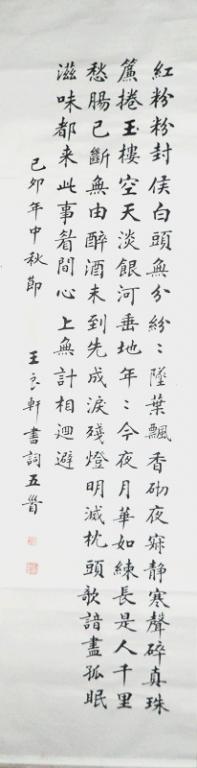 紅粉粉封侯白頭無分紛〻墜葉飄香砌夜寂靜寒聲碎真珠
簾捲玉樓空天淡銀河垂地年〻今夜月華如練長是人千里
愁腸已斷無由醉酒未到先成淚殘燈明滅枕頭欹諳盡孤眠
滋味都來此事眉間心上無計相迴避
己卯年中秋節
王良軒書詞五首